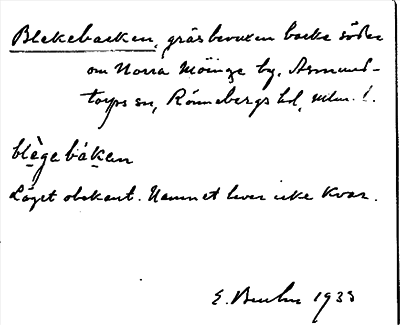 Blekebacken, gräsbevuxen backe söder
om Norra Möinge by, Asmund-
torps sn, Rönnebergs hd, Mlm. l.
blège báken
Läget obekant. Namnet lever icke kvar.
E. 1933